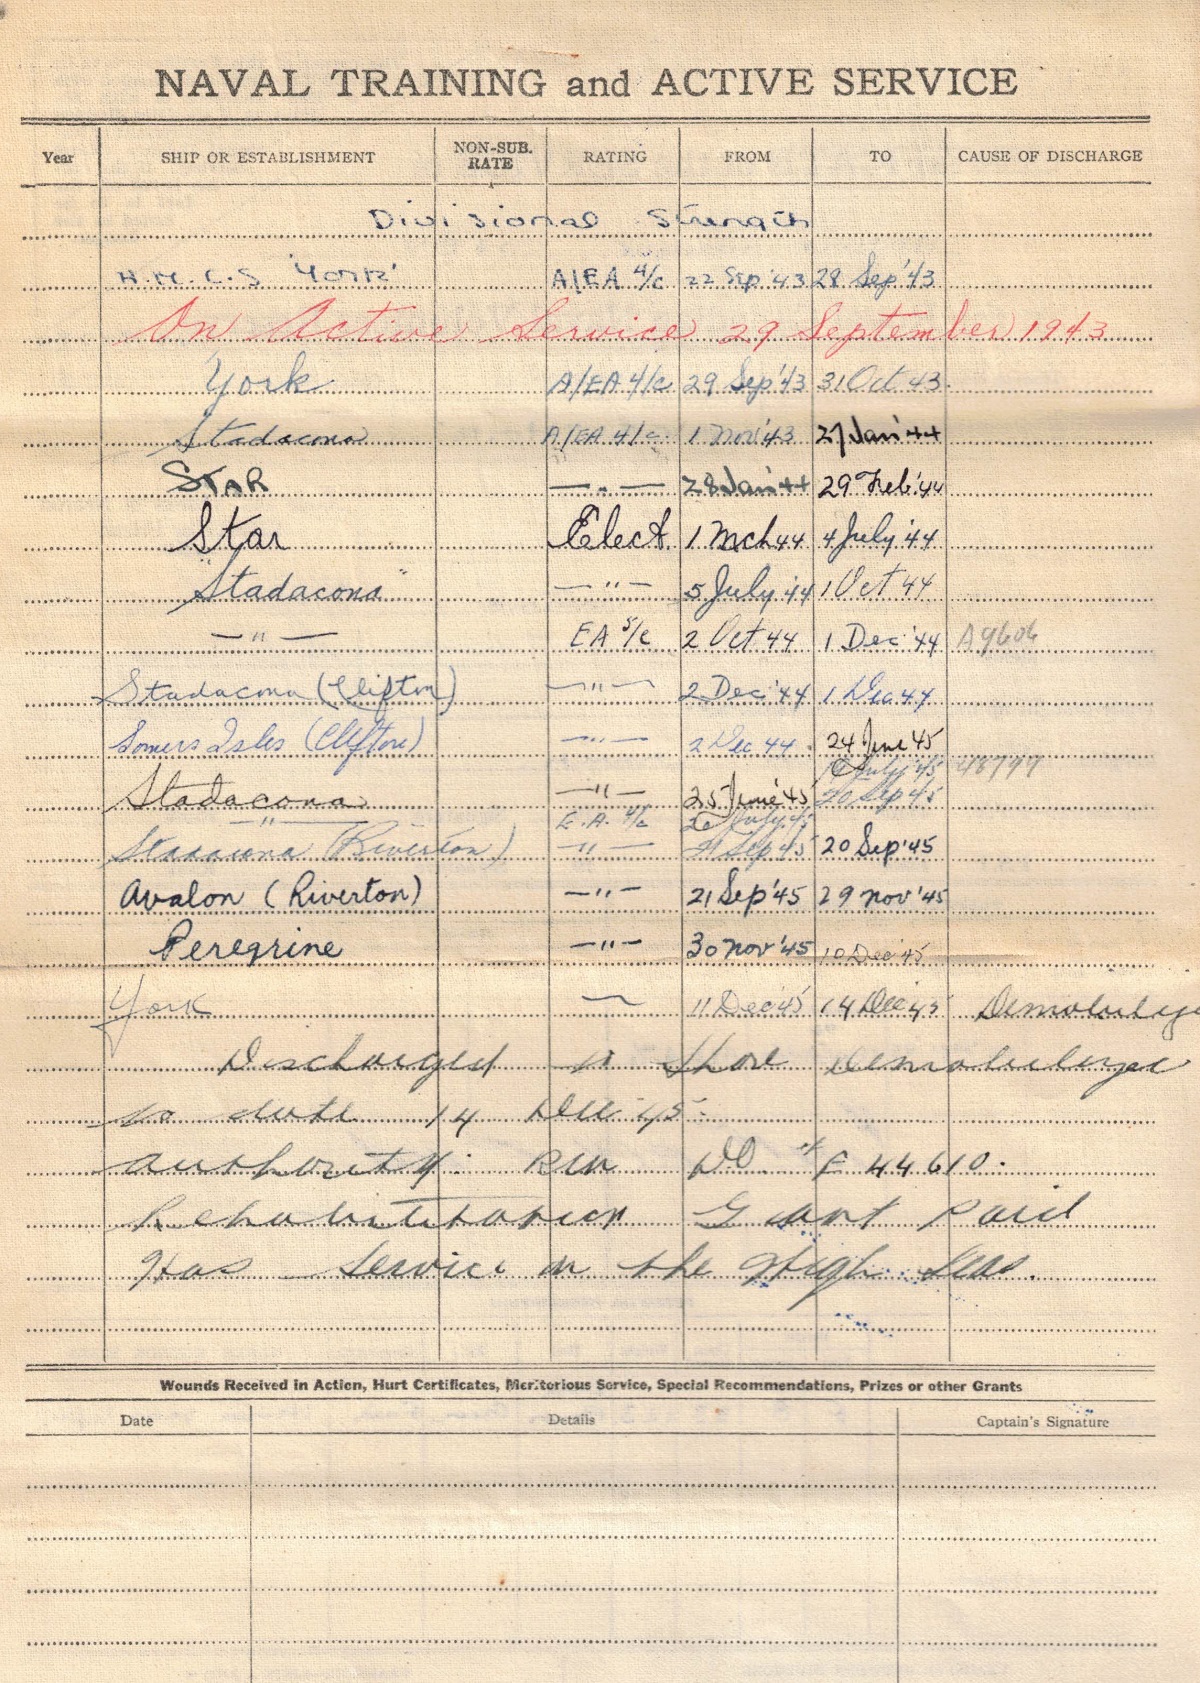 NAVAL TRAINING and ACTIVE SERVICE
Year SHIP OR ESTABLISHMENT NON-SUB. RATE RATING FROM TO CAUSE OF DISCHARGE
Divisional Strength
H.M.C.S 'York' A/EA 4/c 22 Sep '43 28 Sep '43
On Active Service 29 September 1943
York A/EA 4/c 29 Sep '43 31 Oct 43.
Stadacona A/EA 4/c. 1 Nov '43 27 Jan '44
STAR — " — 28 Jan '44 29 Feb. '44
Star Elect. 1 Mch 44 4 July '44
"Stadacona" — " — 5 July '44 1 Oct 44
— " — EA 5/c 2 Oct 44 1 Dec '44 A9606
Stadacona (Clifton) — " — 2 Dec '44 1 Dec 44
Somers Isles (Clifton) — " — 2 Dec 44. 24 June 45
Stadacona — " — 25 June '45 19 July '45 48799
— " — E.A. 4/c 20 July 45 20 Sep 45
Stadacona (Riverton) — " — Sep 45 20 Sep '45
Avalon (Riverton) — " — 21 Sep '45 29 Nov '45
Peregrine — " — 30 Nov '45 10 Dec '45
York 11 Dec 45 14 Dec 45
Discharged to Shore
to date 14 Dec 45.
Authority: RCN DO # F 44610.
Rehabilitation Grant Paid
Has Service on the High Seas.
Wounds Received in Action, Hurt Certificates, Meritorious Service, Special Recommendations, Prizes or other Grants
Date Details Captain's Signature